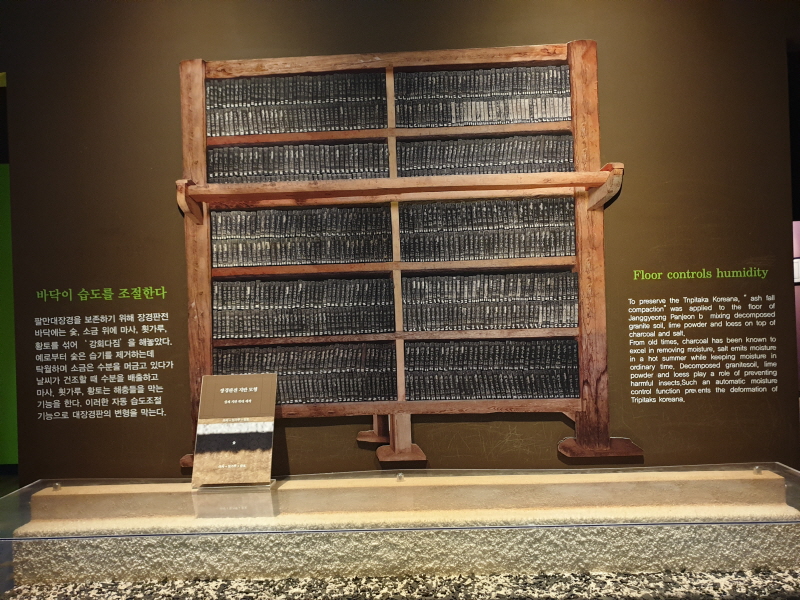 바닥이 습도를 조절한다
팔만대장경을 보존하기 위해 장경판전
바닥에는 숯, 소금 위에 마사, 횟가루,
황토를 섞어 '강회다짐'을 해놓았다.
예로부터 숯은 습기를 제거하는데
탁월하며 소금은 수분을 머금고 있다가
날씨가 건조할 때 수분을 배출하고
마사, 횟가루, 황토는 해충들을 막는
기능을 한다. 이러한 자동 습도조절
기능으로 대장경판의 변형을 막는다.
장경판전 지반 모형
Floor controls humidity
To preserve the Tripitaka Koreana, " ash fall
compaction" was applied to the floor of
Janggyeong Panjeon b mixing decomposed
granite soil, lime powder and loess on top of
charcoal and salt,
From old times, charcoal has been known to
excel in removing moisture, salt emits moisture
in a hot summer while keeping moisture in
ordinary time, Decomposed granitesoil, lime
powder and loess play a role of preventing
harmful insects,Such an automatic moisture
control function prevents the deformation of
Tripitaks koreana,